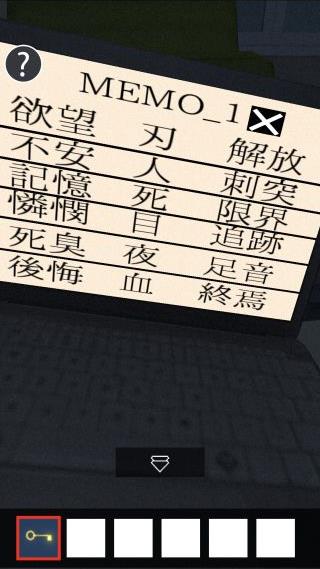 ?
MEMO_1
欲望 刃 解放
不安 人 刺突
記憶 死 限界
憐憫 目 追跡
死臭 夜 足音
後悔 血 終焉